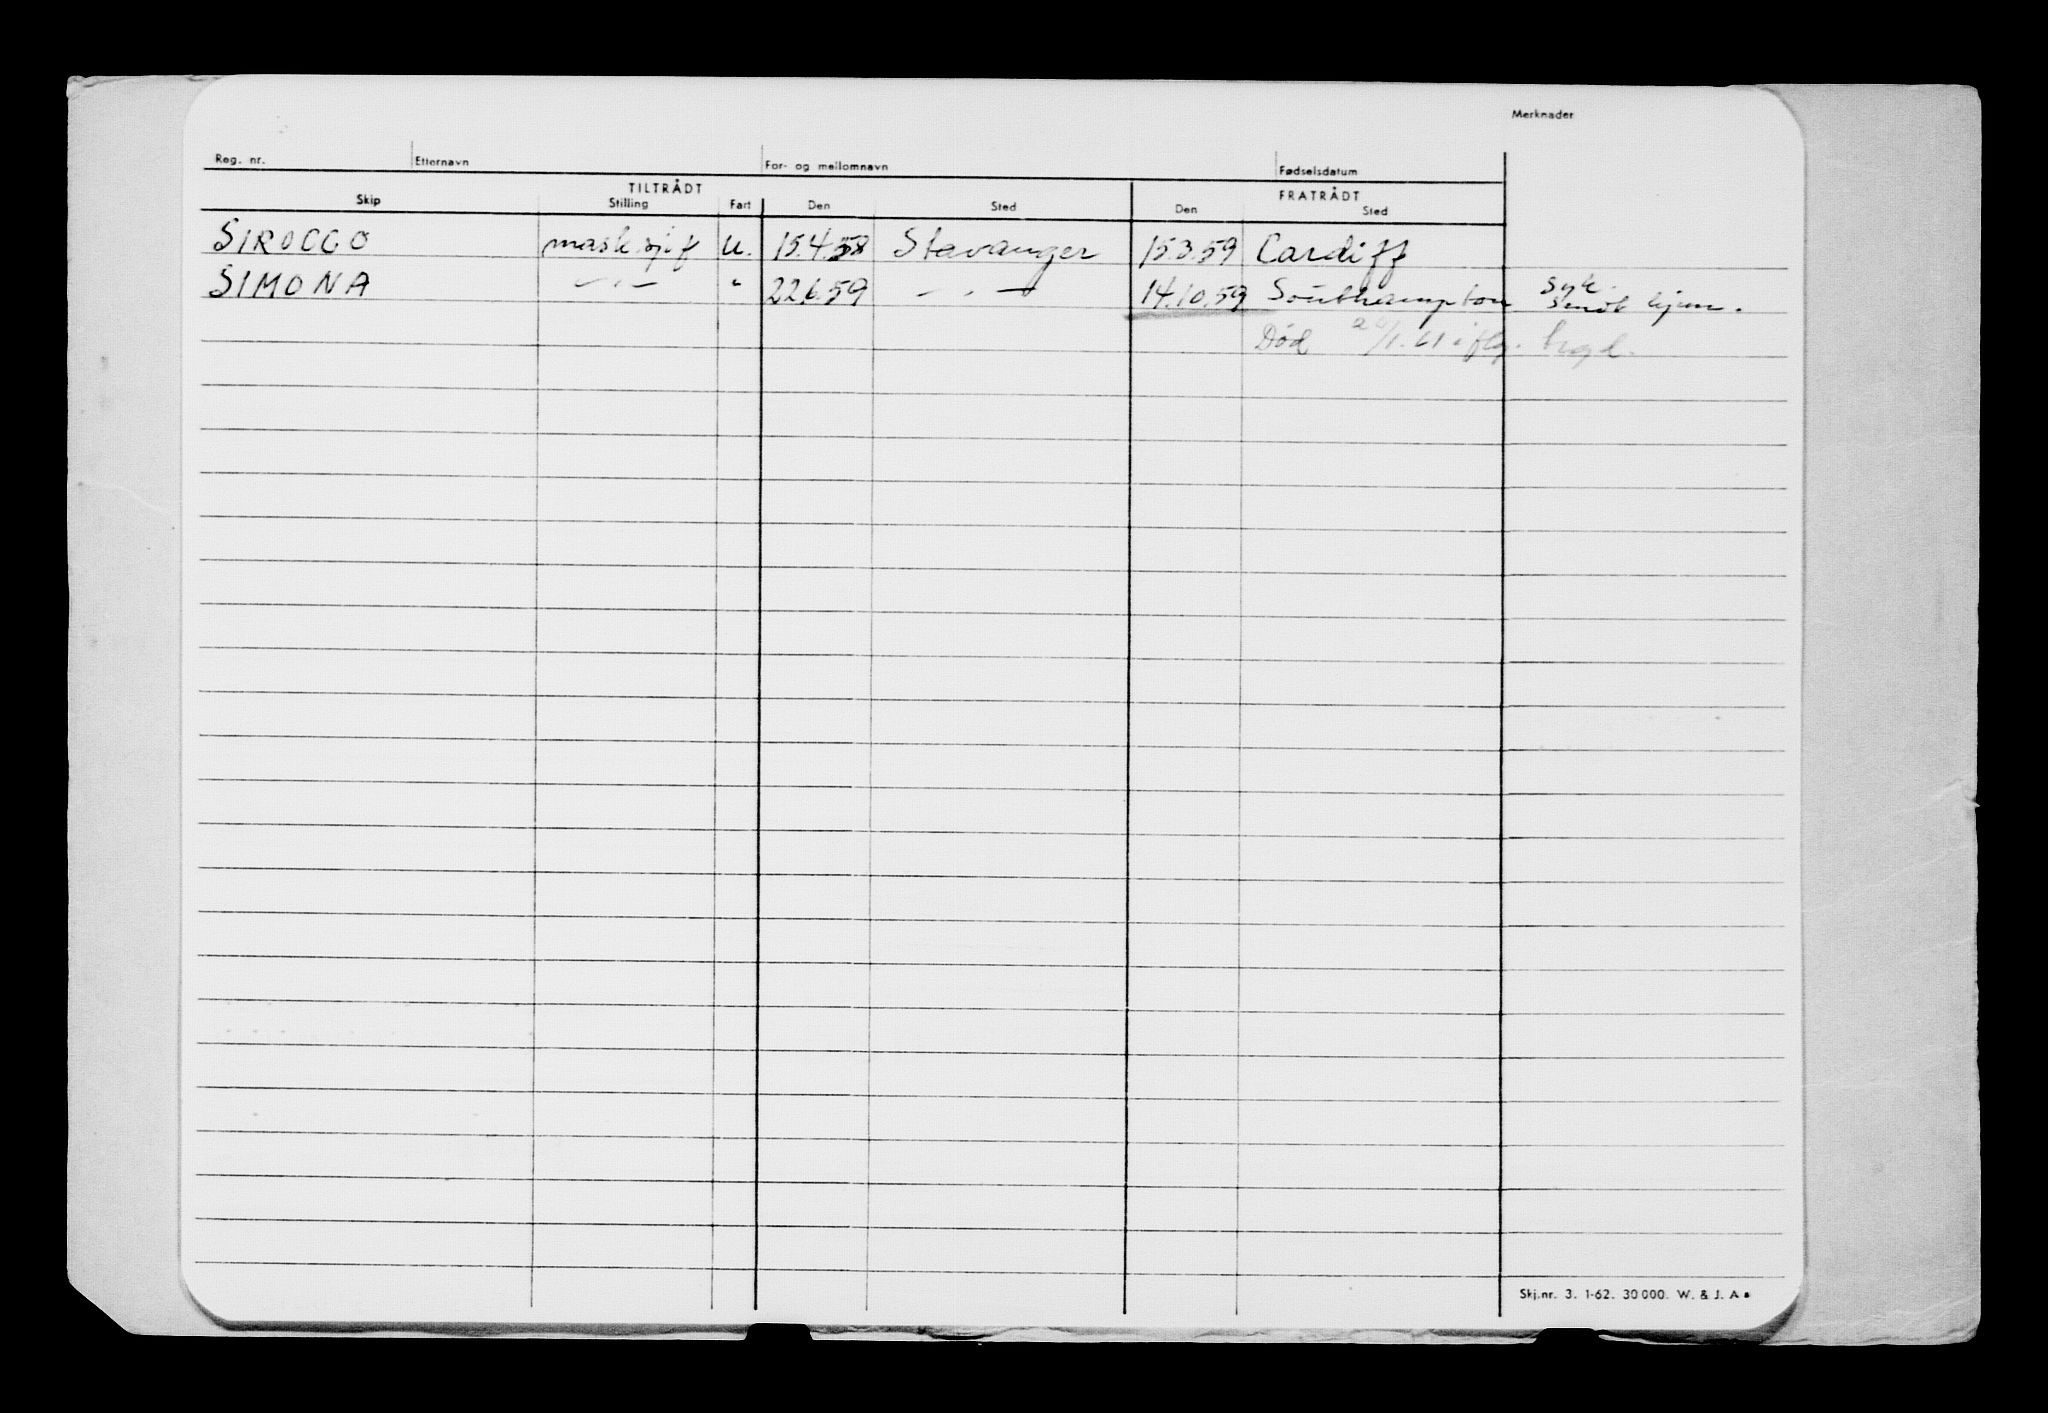 Merknader
Reg. nr. Etternavn For- og mellomnavn Fødselsdatum
TILTRÅDT FRATRÅDT
Skip Stilling Fart Den Sted Den Sted
SIROCCO mask.sjef U. 15.4.58 Stavanger 15.3.59 Cardiff
SIMONA —"— " 22.6.59 —"— 14.10.59 Southampton Syk. Sendt hjem.
Død /1.61 iflg. brgd.
Skj.nr. 3. 1-62. 30 000. W. & J. A